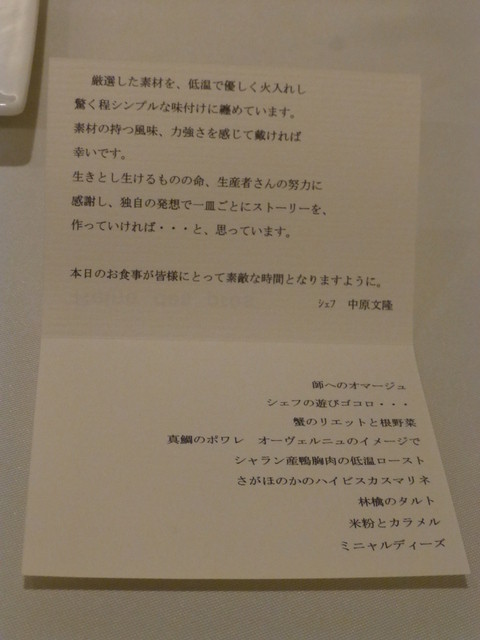 厳選した素材を、低温で優しく火入れし
驚く程シンプルな味付けに纏めています。
素材の持つ風味、力強さを感じて戴ければ
幸いです。
生きとし生けるものの命、生産者さんの努力に
感謝し、独自の発想で一皿ごとにストーリーを、
作っていければ・・・と、思っています。
本日のお食事が皆様にとって素敵な時間となりますように。
ｼｪﾌ 中原文隆
師へのオマージュ
シェフの遊びゴコロ・・・
蟹のリエットと根野菜
真鯛のポワレ オーヴェルニュのイメージで
シャラン産鴨胸肉の低温ロースト
さがほのかのハイビスカスマリネ
林檎のタルト
米粉とカラメル
ミニャルディーズ